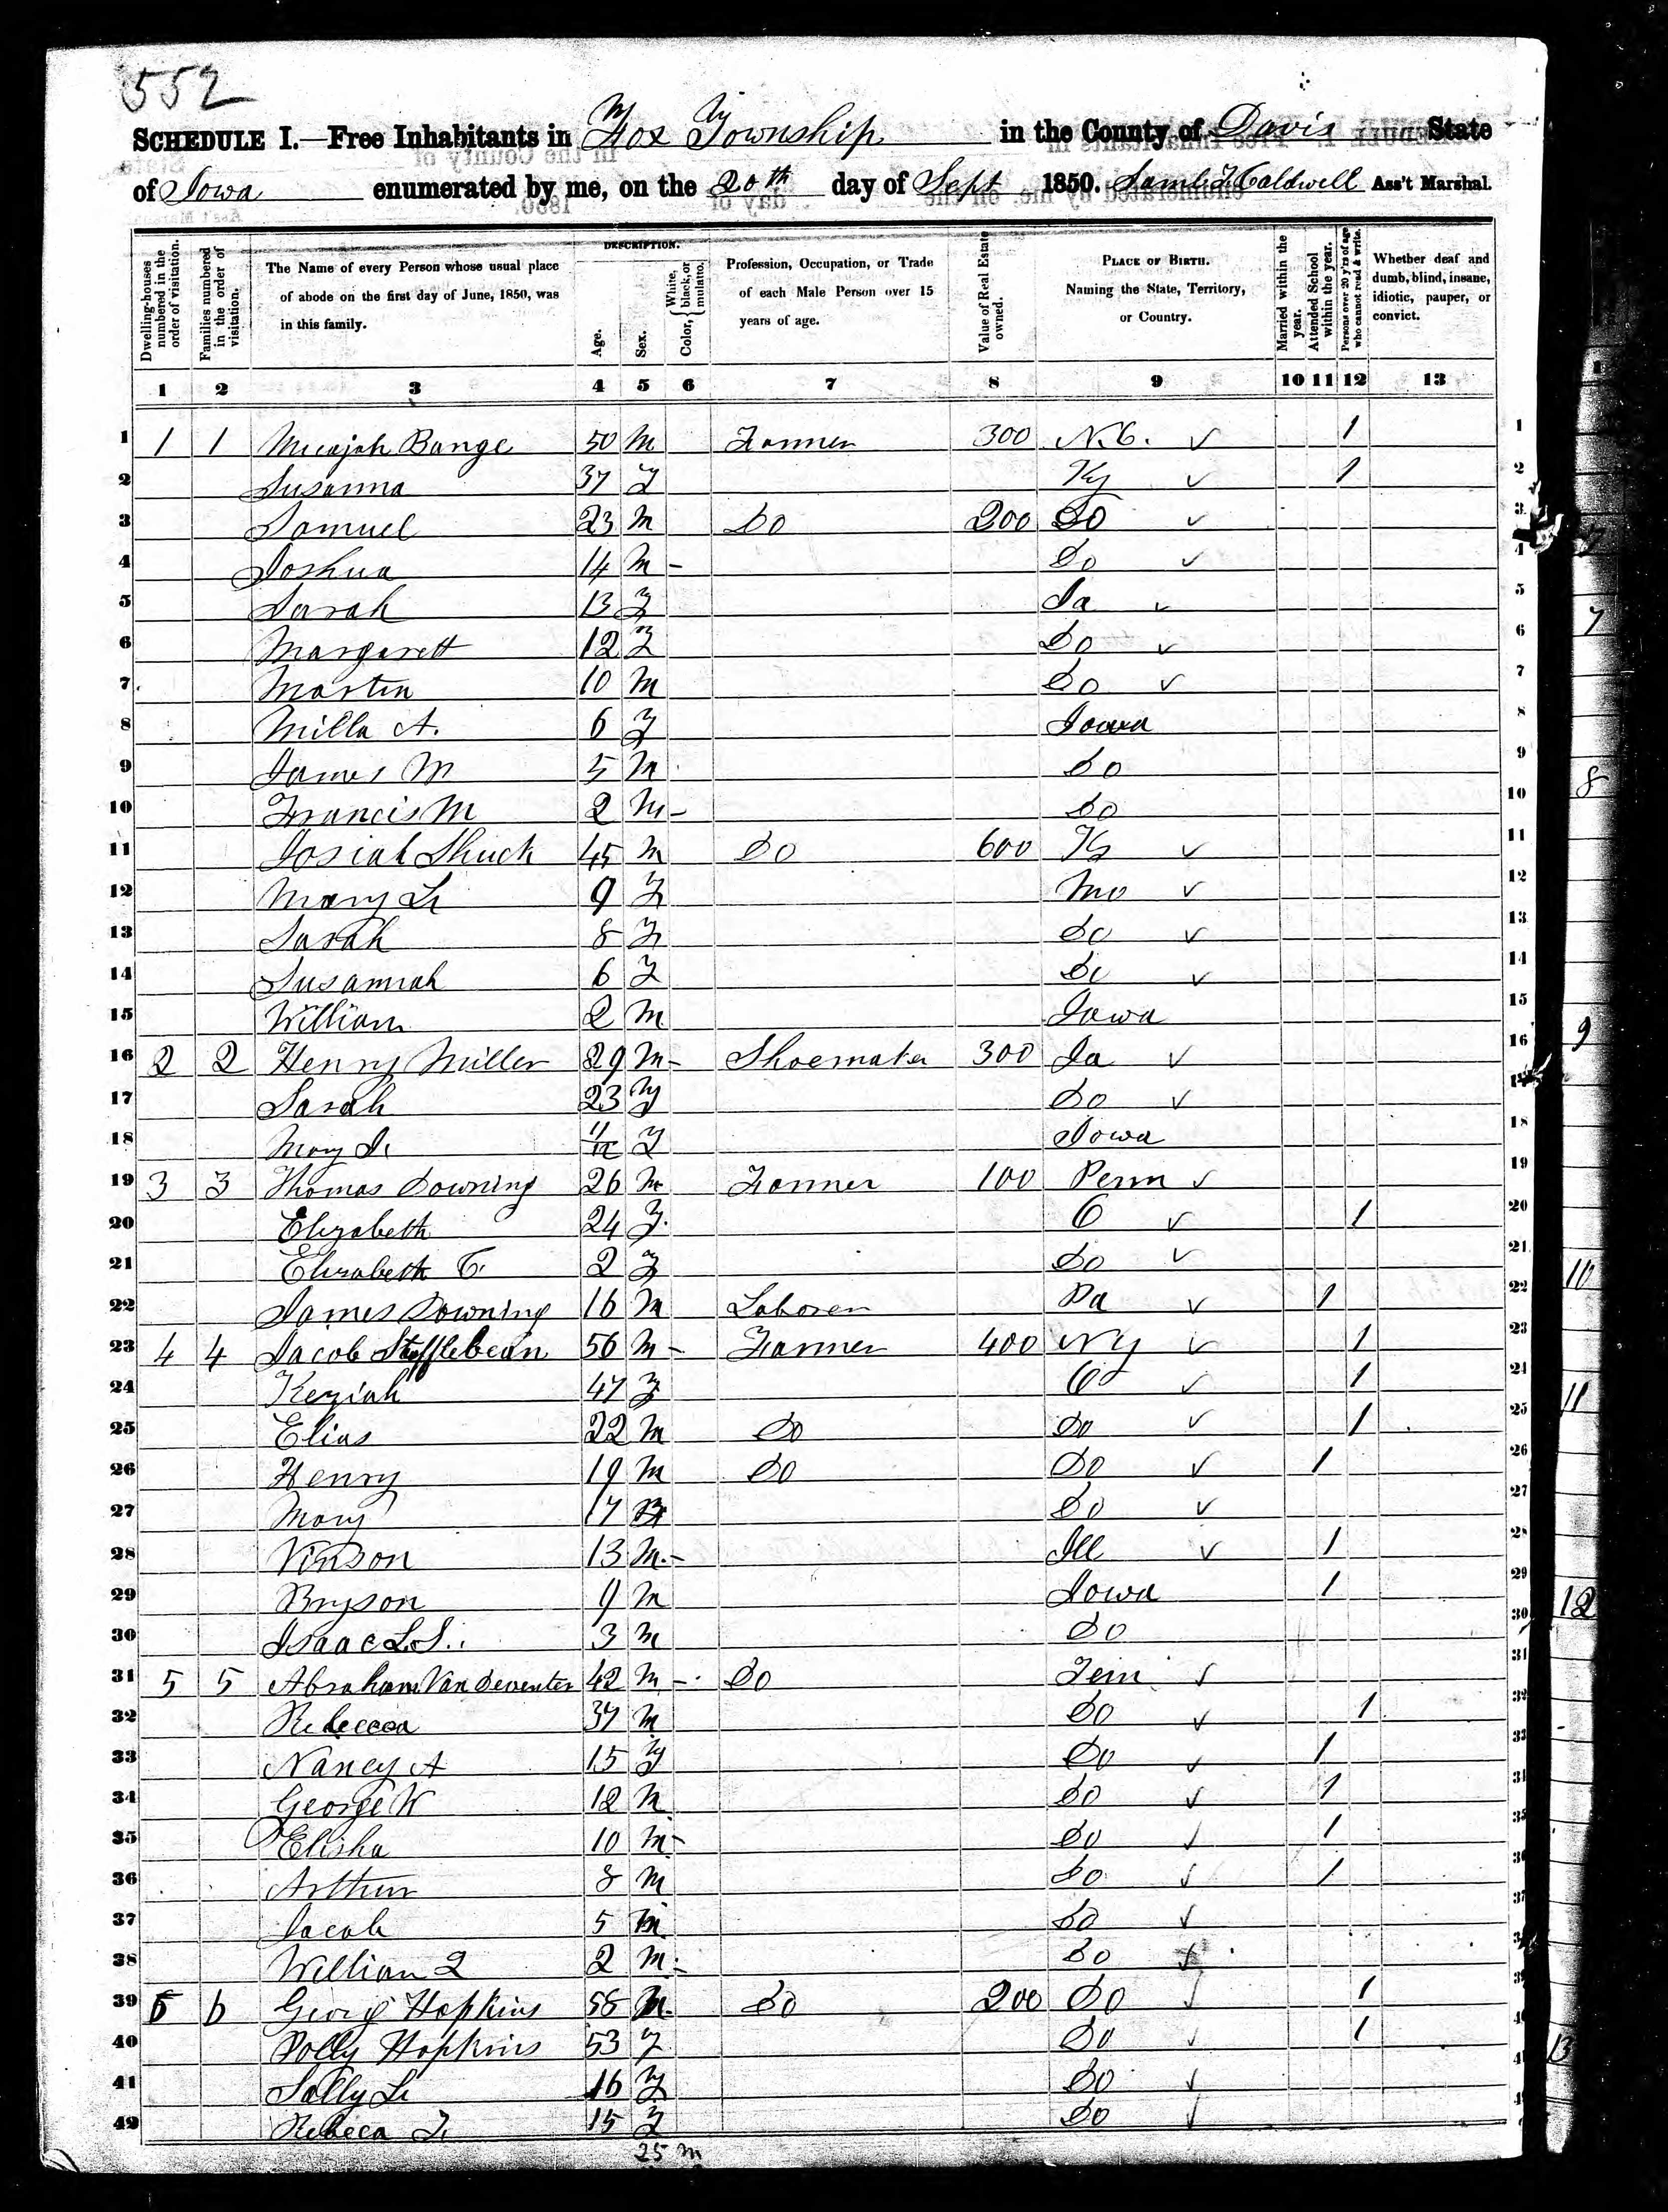 552
SCHEDULE I.—Free Inhabitants in Fox Township in the County of Davis State
of Iowa enumerated by me, on the 20th day of Sept 1850. Saml T. Caldwell Ass't Marshal.
Dwelling-houses numbered in the order of visitation.
Families numbered in the order of visitation.
The Name of every Person whose usual place of abode on the first day of June, 1850, was in this family.
DESCRIPTION.
Age.
Sex.
Color, White, black, or mulatto.
Profession, Occupation, or Trade of each Male Person over 15 years of age.
Value of Real Estate owned.
PLACE OF BIRTH. Naming the State, Territory, or Country.
Married within the year.
Attended School within the year.
Persons over 20 y'rs of age who cannot read & write.
Whether deaf and dumb, blind, insane, idiotic, pauper, or convict.
1 2 3 4 5 6 7 8 9 10 11 12 13
1 1 1 Micajah Bunge 50 M Farmer 300 N.C. ✓ 1 1
2 Susanna 37 F Ky ✓ 1 2
3 Samuel 23 M Do 200 Do ✓ 3
4 Joshua 14 M - Do ✓ 4
5 Sarah 13 F Ia ✓ 5
6 Margarett 12 F Do ✓ 6
7 Martin 10 M Do ✓ 7
8 Milla A. 6 F Iowa 8
9 James M 5 M Do 9
10 Francis M 2 M - Do 10
11 Josiah Shuck 45 M Do 600 Ky ✓ 11
12 Mary E 9 F Mo ✓ 12
13 Sarah 8 F Do ✓ 13
14 Susannah 6 F Do ✓ 14
15 William 2 M Iowa 15
16 2 2 Henry Miller 29 M - Shoemaker 300 Ia ✓ 16
17 Sarah 23 F Do ✓ 17
18 Mary 11/12 F Iowa 18
19 3 3 Thomas Downing 26 M Farmer 100 Penn ✓ 19
20 Elizabeth 24 F O ✓ 1 20
21 Elizabeth C. 2 F Do ✓ 21
22 James Downing 16 M Laborer Pa ✓ 1 22
23 4 4 Jacob Stufflebean 56 M - Farmer 400 N Y ✓ 1 23
24 Keziah 47 F O ✓ 1 24
25 Elias 22 M Do Do ✓ 1 25
26 Henry 19 M Do Do ✓ 1 26
27 Mary 17 F Do ✓ 27
28 Vinson 13 M - Ill ✓ 1 28
29 Bryson 9 M Iowa 1 29
30 Isaac L.S. 3 M Do 30
31 5 5 Abraham Van Deventer 42 M - Do Tenn ✓ 31
32 Rebecca 37 M Do ✓ 1 32
33 Nancy A 15 F Do ✓ 1 33
34 George W 12 M Do ✓ 1 34
35 Elisha 10 M - Do ✓ 1 35
36 Arthur 8 M Do ✓ 1 36
37 Jacob 5 M Do ✓ 37
38 William 2 M Do ✓ 38
39 6 6 George Hopkins 58 M Do 200 Do ✓ 1 39
40 Polly Hopkins 53 F Do ✓ 1
41 Sally 16 F Do ✓
42 Rebeca 15 F Do ✓
25 M
7
8
9
10
11
12
13